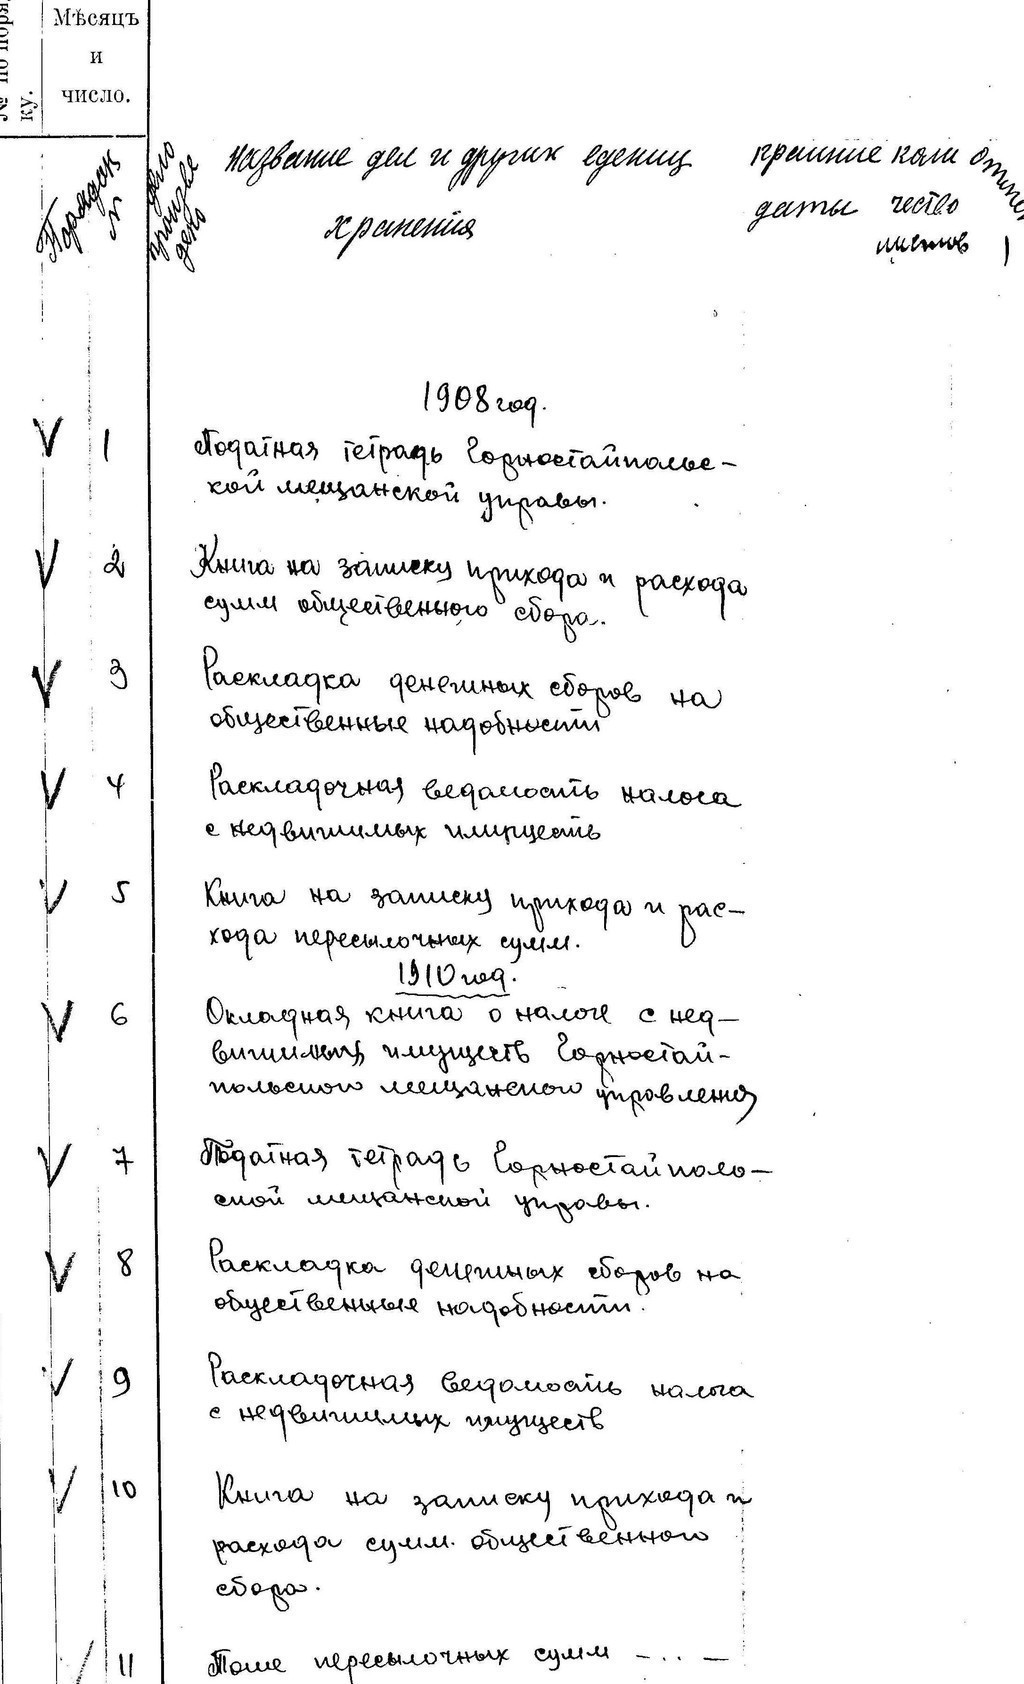 № по порядку.
Мѣсяцъ
и
число.
Порядок
№
дело
произве
дено
название дел и других едениц
хранения
крайние
даты
коли
чество
листов
1908 год.
1 Податная тетрадь Горностайпольс-
кой мещанской управы.
2 Книга на записку прихода и расхода
сумм общественного сбора.
3 Раскладка денежных сборов на
общественные надобности
4 Раскладочная ведомость налога
с недвижимых имуществ
5 Книга на записку прихода и рас-
хода пересылочных сумм.
1910 год.
6 Окладная книга о налоге с нед-
вижимых имуществ Горностай-
польского мещанского управления
7 Податная тетрадь Горностайполь-
ской мещанской управы.
8 Раскладка денежных сборов на
общественные надобности.
9 Раскладочная ведомость налога
с недвижимых имуществ
10 Книга на записку прихода и
расхода сумм. общественного
сбора.
11 Тоже пересылочных сумм -..-